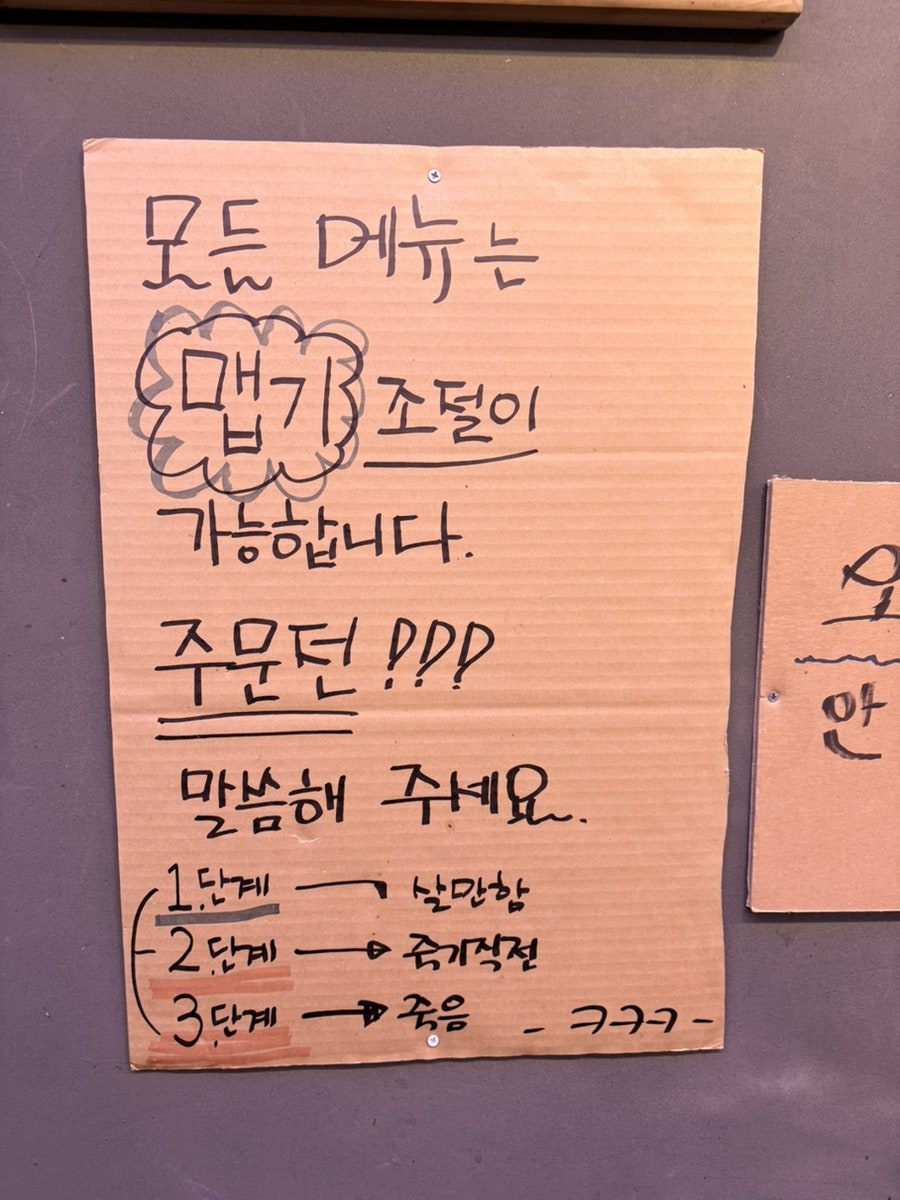 모든 메뉴는
맵기 조절이
가능합니다.
주문전 !!!
말씀해 주세요.
1.단계 → 살만함
2.단계 → 죽기직전
3.단계 → 죽음 - ㅋㅋㅋ -
오
안